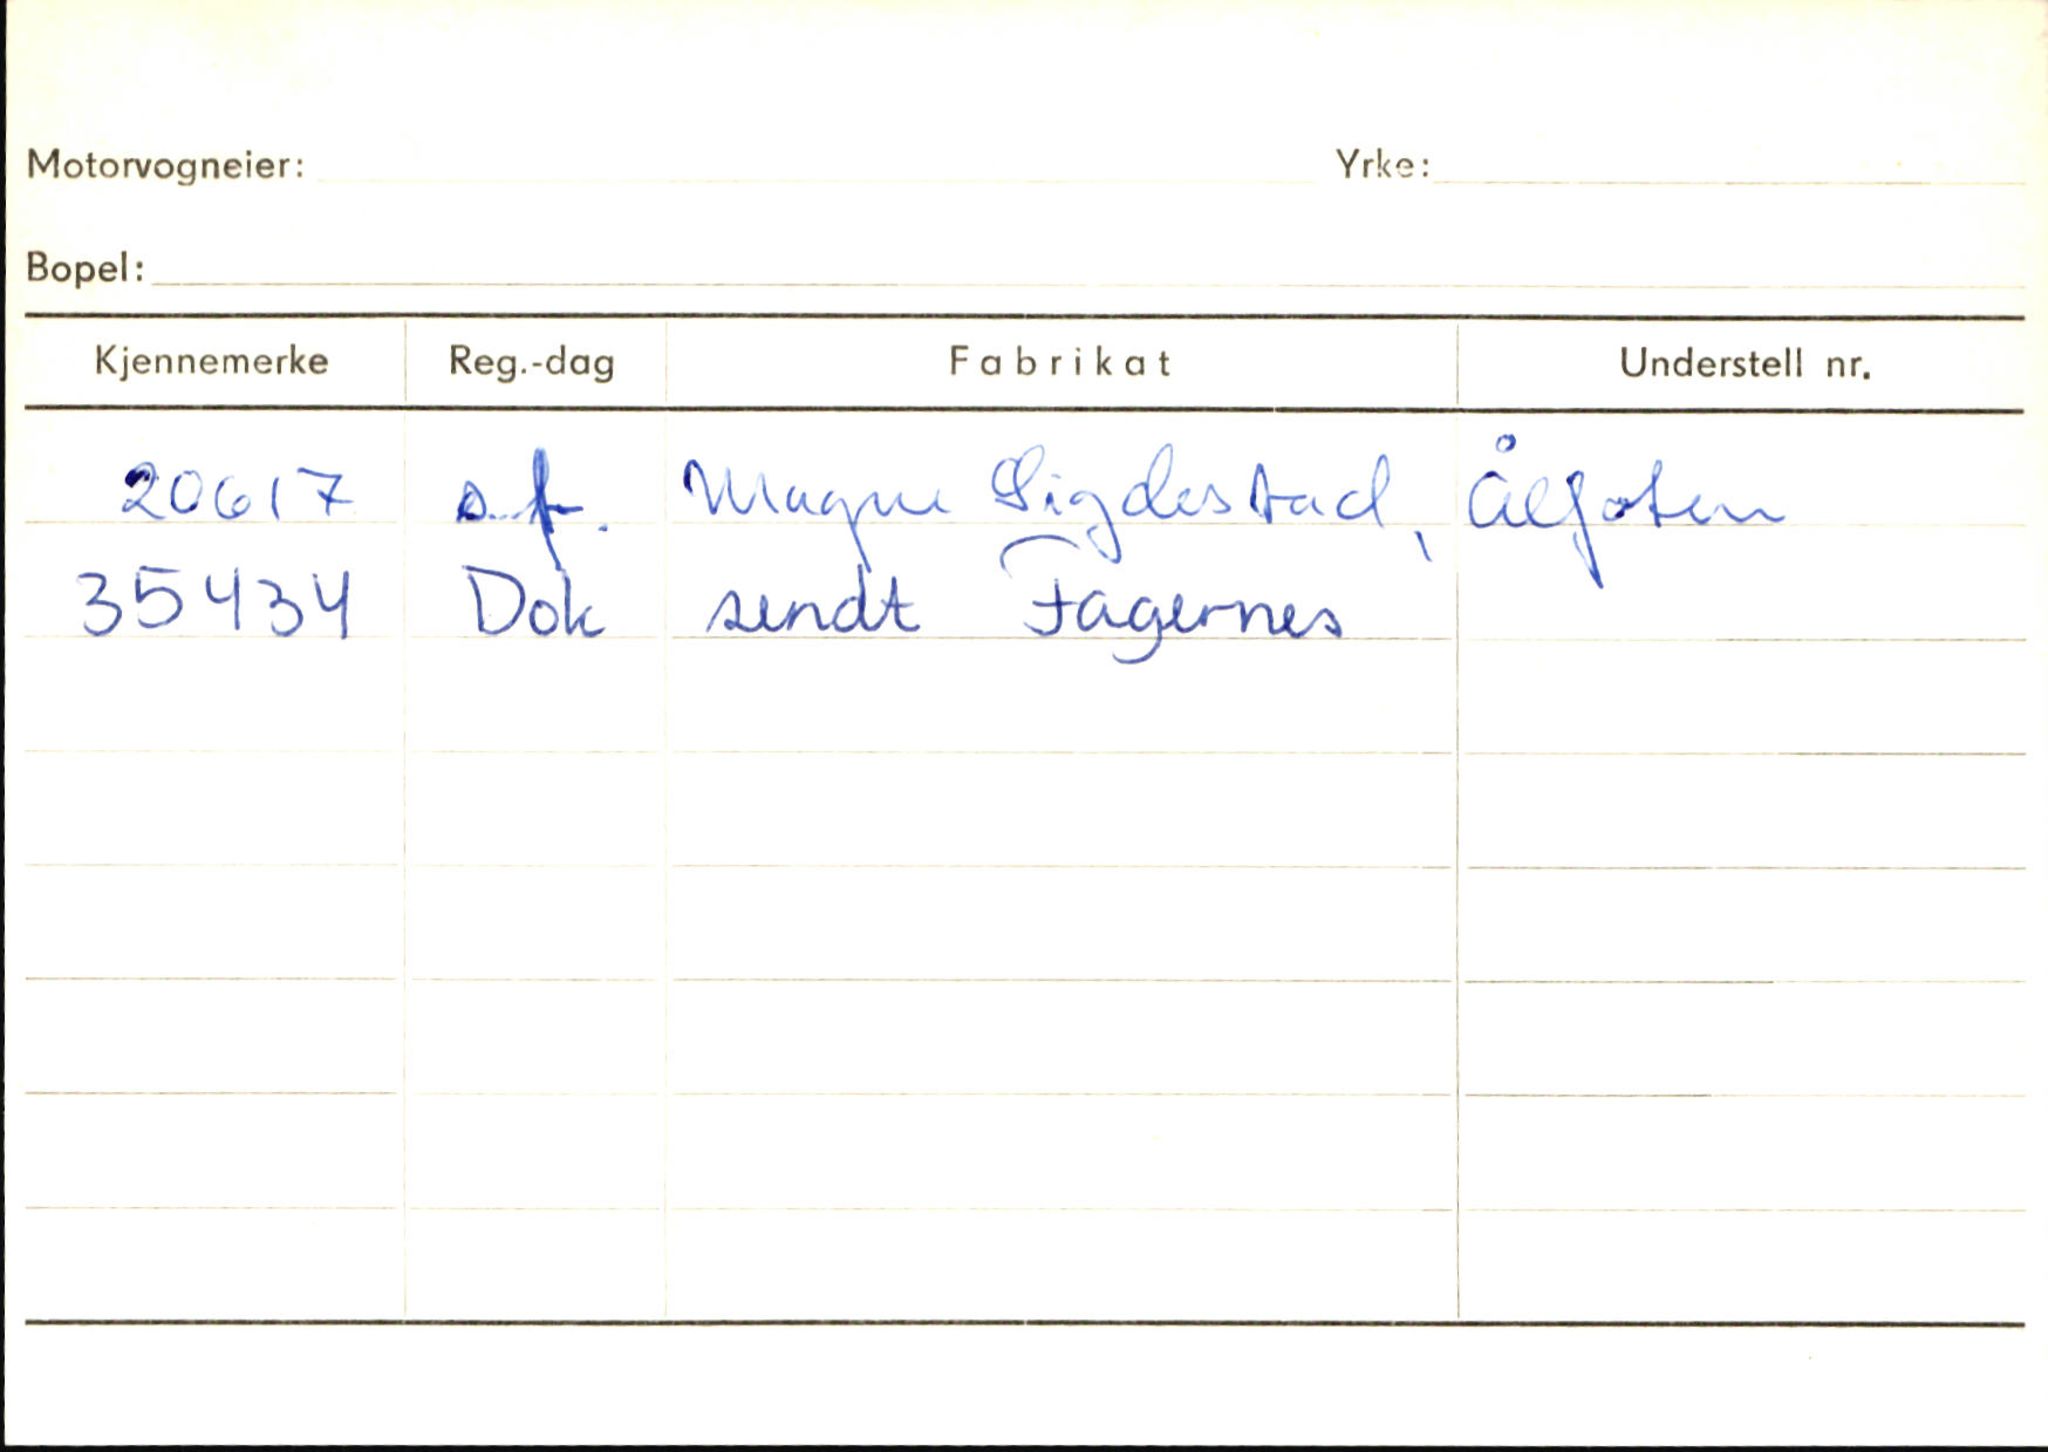 Motorvogneier: Yrke:
Bopel:
Kjennemerke Reg.-dag Fabrikat Understell nr.
20617 s.f. Magne Sigdestad, Ålfoten
35434 Dok sendt Fagernes